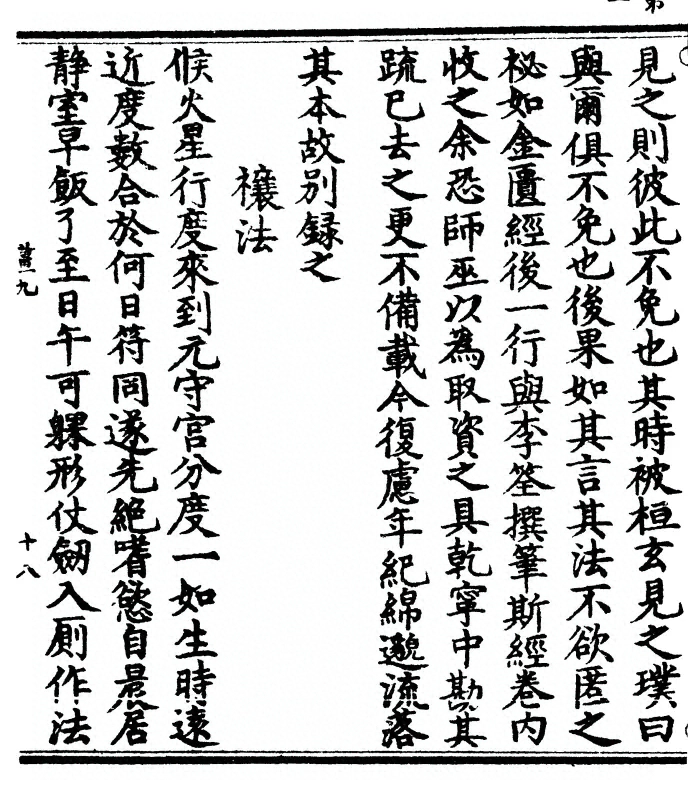 見之則彼此不免也其時被桓玄見之璞曰
與爾俱不免也後果如其言其法不欲匿之
祕如金匱經後一行與李筌撰筆斯經卷內
收之余恐師巫以為取資之具乾寧中勘其
䟽已去之更不備載今復慮年紀綿邈流落
其本故別錄之
禳法
候火星行度來到元守宮分度一如生時遠
近度數合於何日符同遂先絕嗜慾自晨居
靜室早飯了至日午可躶形仗劒入厠作法
十八